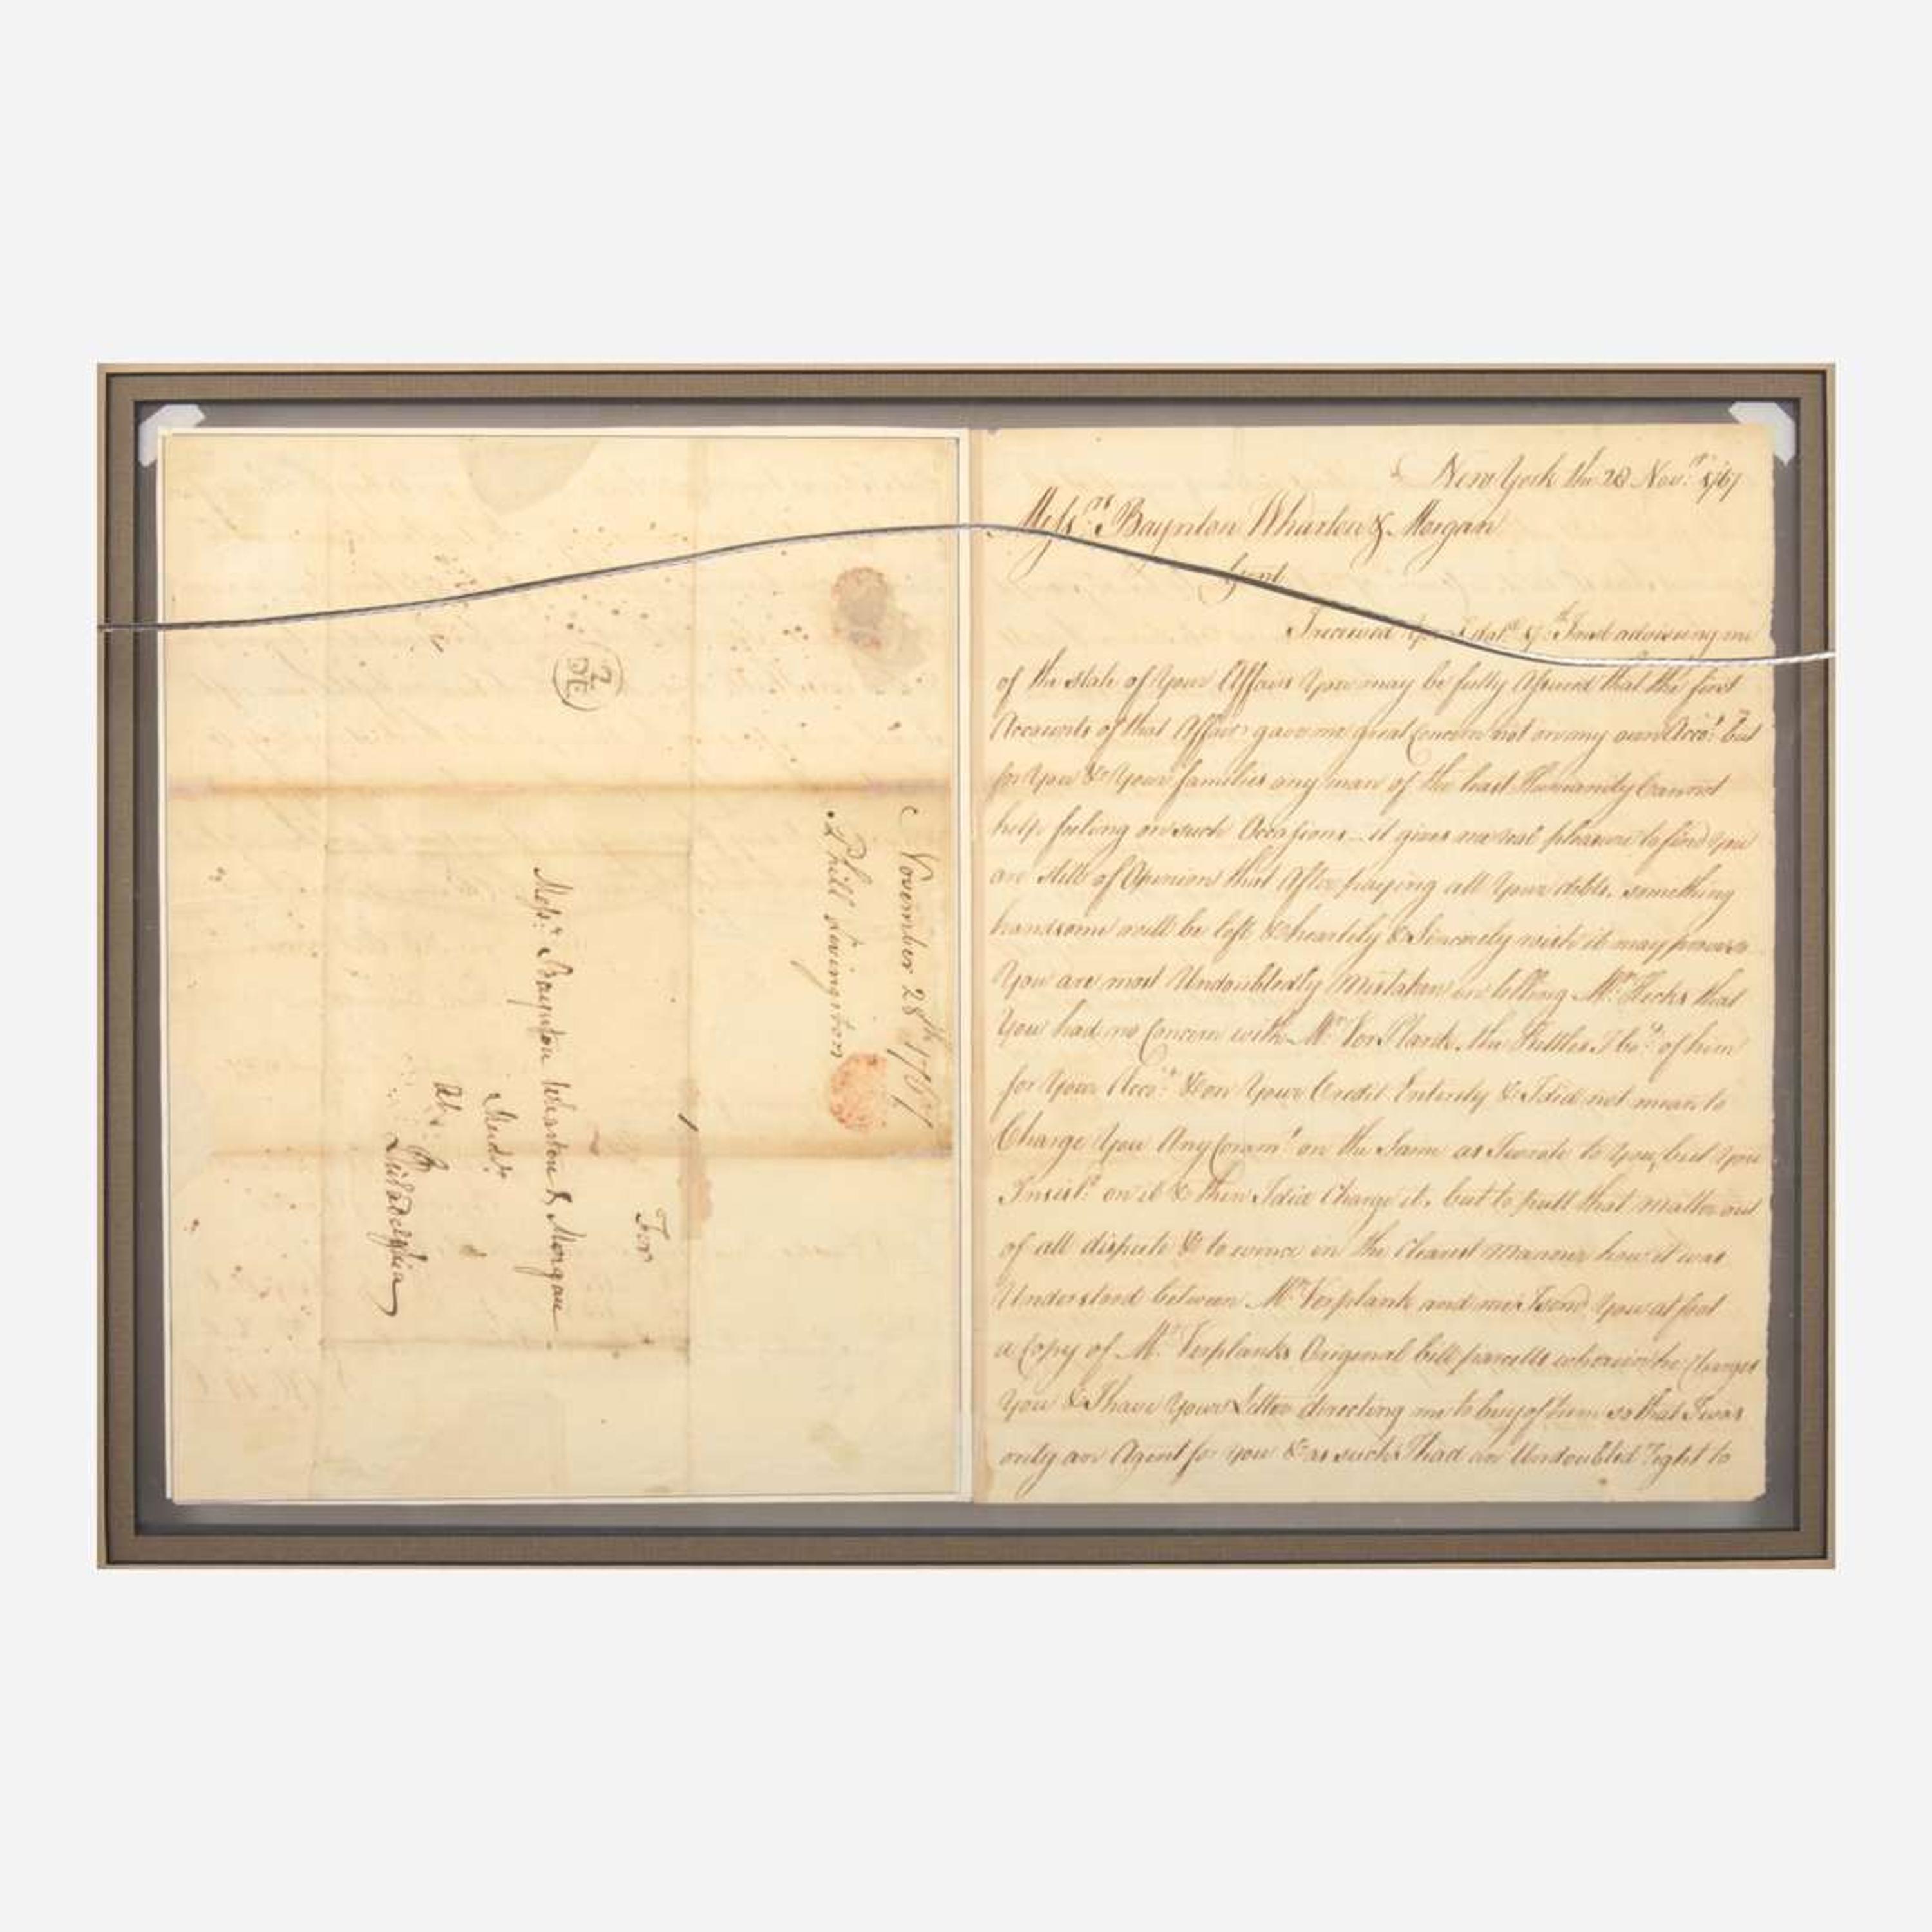 November 28th 1767
Phill Livingston
For
Messrs Baynton Wharton & Morgan
Merchts
At
Philadelphia
New York the 28 Novr 1767
Messrs Baynton Wharton & Morgan
Gent
I received Inst adviseing me
of the state of Your Affairs You may be fully Assured that the first
Accounts of that Affair gave me great Concern not on my own Accot but
for You & Your families any man of the least Humanity Cannot
help feeling on such Occasions it gives me real pleasure to find you
are still of Opinion that After paying all Your debts something
handsome will be left & heartily & Sincerely wish it may
You are most Undoubtedly Mistaken in telling Mr Hicks that
You had no Concern with Mr VerPlank the Kittles I bot of him
for Your Accot & on Your Credit Entirely & I did not mean to
Charge You Any Comms on the Same as I wrote to You, but you
Insistd on it & then I did Charge it, but to putt that matter out
of all dispute & to evince in the Clearest mannour how it was
Understood between Mr Verplank and me I send You at foot
a Copy of Mr Verplanks Original bill parcells wherein he Charges
You & I have Your Letter directing me to buy of him so that I was
only an Agent for you & as such I had an Undoubted right to